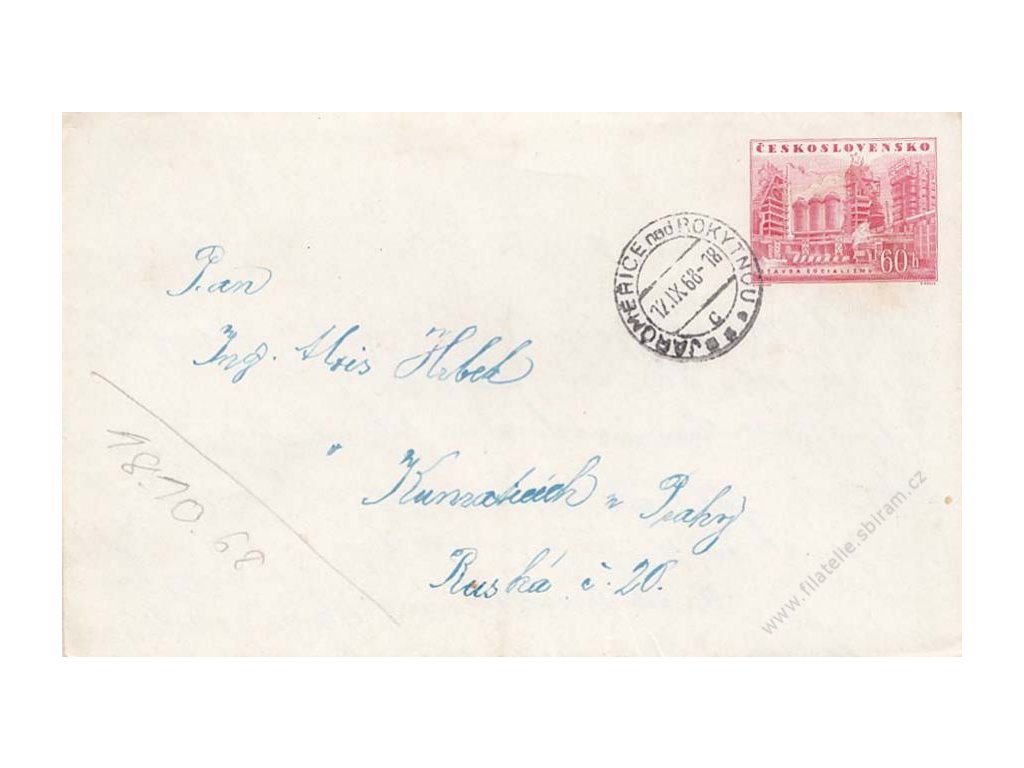 ČESKOSLOVENSKO
60 h
STAVBA SOCIALISMU
JAROMĚŘICE nad ROKYTNOU
12.IX.68-18
c
Pan
Ing. Alois Hrbek
v
Kunraticích u Prahy
Ruská č. 20.
www.filatelie.sbiram.cz